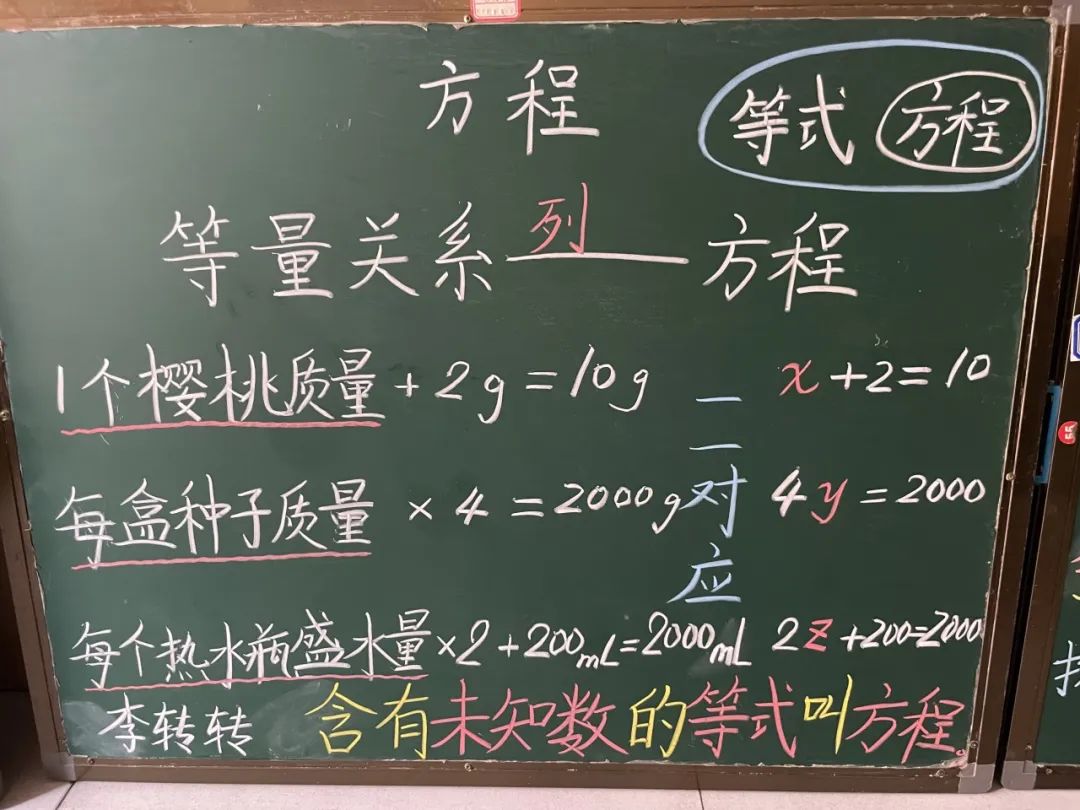 方程
等式 方程
等量关系 列 方程
1个樱桃质量+2g=10g x+2=10
一一对应
每盒种子质量×4=2000g 4y=2000
每个热水瓶盛水量×2+200mL=2000mL 2z+200=2000
李转转 含有未知数的等式叫方程。